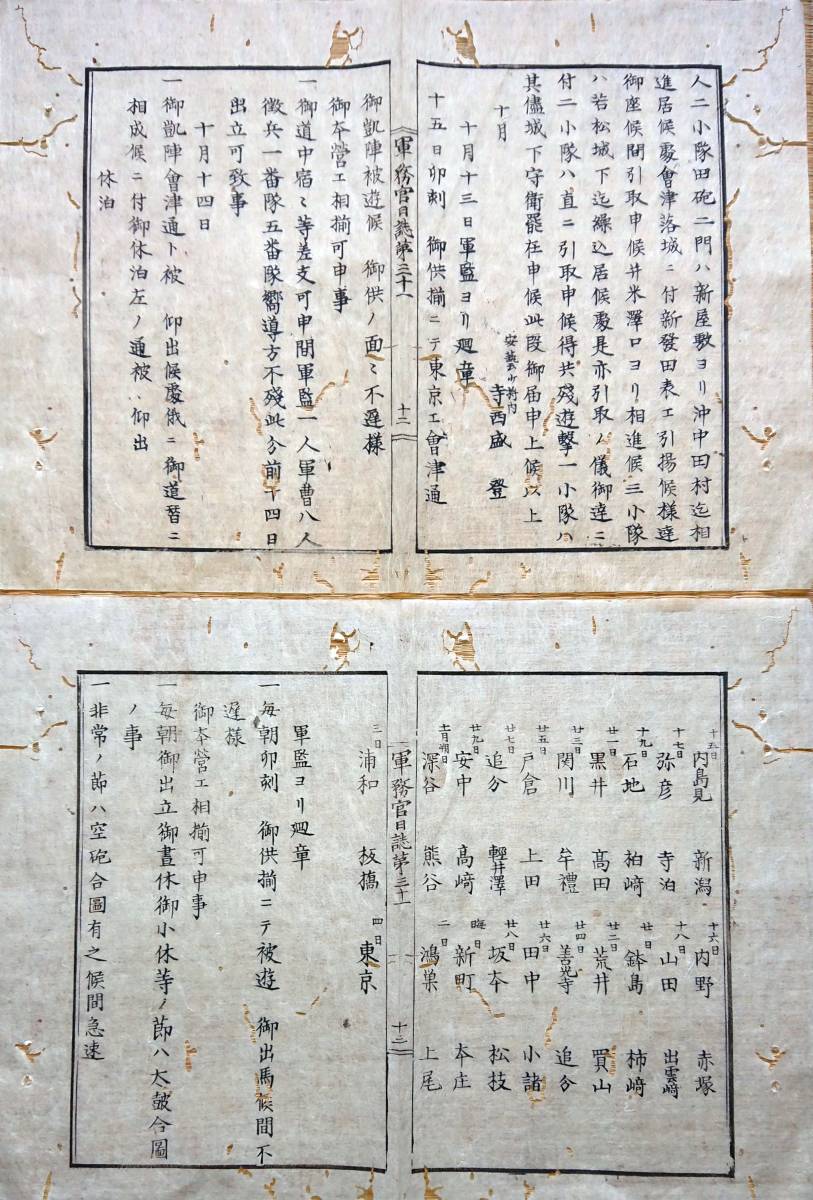 人二小隊田砲二門ハ新屋敷ヨリ沖中田村迄相
進居候處會津落城ニ付新發田表エ引揚候様達
御座候間引取申候并米澤口ヨリ相進候三小隊
ハ若松城下迄繰込居候處是亦引取ノ儀御達ニ
付二小隊ハ直ニ引取申候得共殘遊撃一小隊ハ
其儘城下守衛罷在申候此段御届申上候以上
十月
安藝少将内
寺西盛登
十月十三日軍監ヨリ廻章
十五日卯刻 御供揃ニテ東京エ會津通
軍務官日誌第三十一
十二
御凱陣被遊候 御供ノ面々不遲様
御本營エ相揃可申事
一御道中宿々等差支可申間軍監一人軍曹八人
徴兵一番隊五番隊嚮導方不殘此分前十四日
出立可致事
十月十四日
一御凱陣會津通ト被 仰出候處俄ニ御道替ニ
相成候ニ付御休泊左ノ通被 仰出
休泊
十五日 内島見 新潟 十六日 内野 赤塚
十七日 弥彦 寺泊 十八日 山田 出雲﨑
十九日 石地 柏﨑 廿日 鉢島 柿﨑
廿一日 黒井 高田 廿二日 荒井 買山
廿三日 関川 牟禮 廿四日 善光寺 追分
廿五日 戸倉 上田 廿六日 田中 小諸
廿七日 追分 輕井澤 廿八日 坂本 松枝
廿九日 安中 高﨑 晦日 新町 本庄
十一月朔日 深谷 熊谷 二日 鴻巣 上尾
軍務官日誌第三十一
十三
三日 浦和 板橋 四日 東京
軍監ヨリ廻章
一毎朝卯刻 御供揃ニテ被遊 御出馬候間不
遲様
御本營エ相揃可申事
一毎朝御出立御晝休御小休等ノ節ハ大皷合圖
ノ事
一非常ノ節ハ空砲合圖有之候間急速